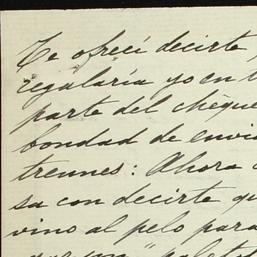 Te ofrecí decirte,
regalaría yo en t
parte del chèque
bondad de envia
trennes: Ahora
sa con decirte qu
vino al pelo para